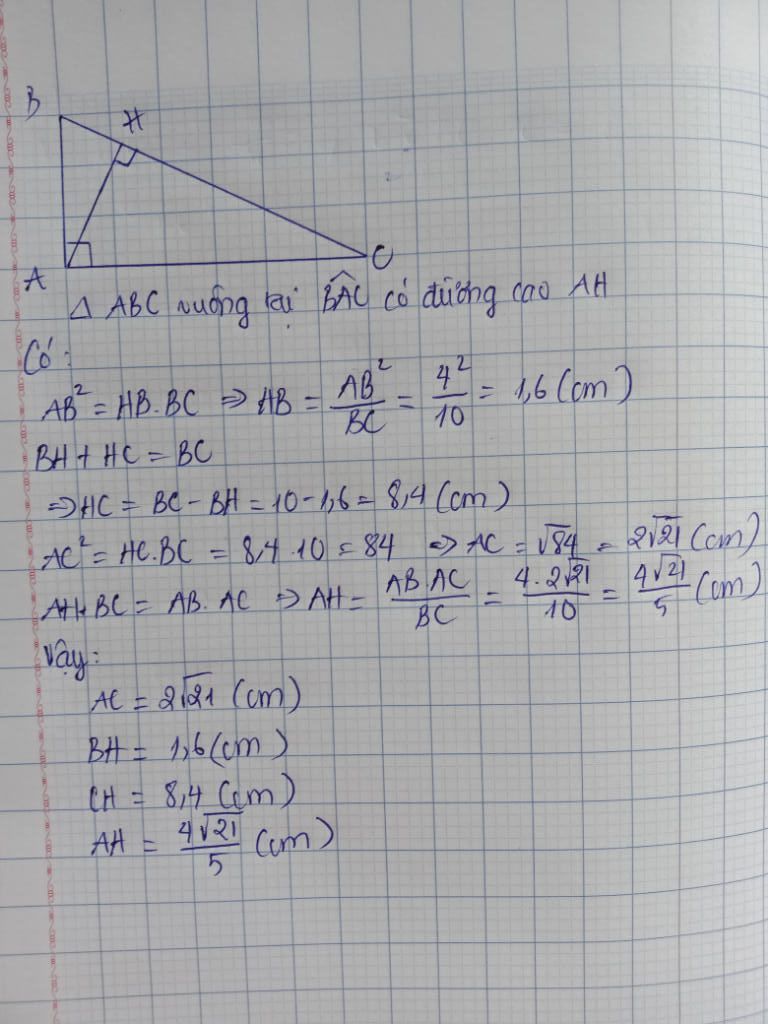 B
H
A
C
Δ ABC vuông tại BÂC có đường cao AH
Có:
AB² = HB.BC ⇒ HB = AB²/BC = 4²/10 = 1,6 (cm)
BH + HC = BC
⇒ HC = BC - BH = 10 - 1,6 = 8,4 (cm)
AC² = HC.BC = 8,4.10 = 84 ⇒ AC = √84 = 2√21 (cm)
AH.BC = AB.AC ⇒ AH = AB.AC/BC = 4.2√21/10 = 4√21/5 (cm)
Vậy:
AC = 2√21 (cm)
BH = 1,6 (cm)
CH = 8,4 (cm)
AH = 4√21/5 (cm)